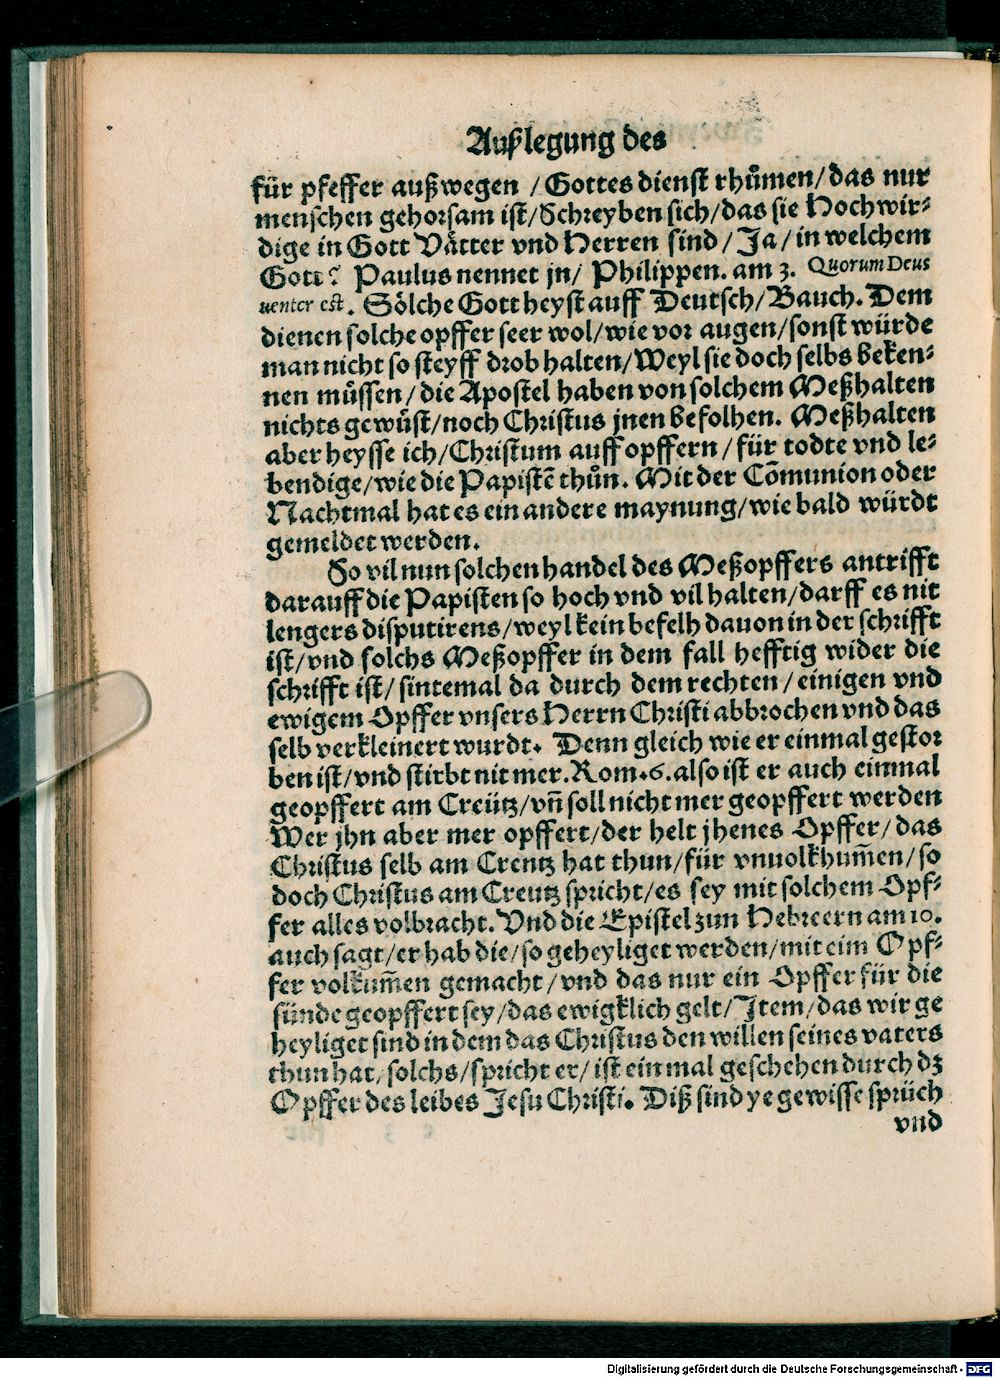 Außlegung des
für pfeffer außwegen / Gottes dienst rhůmen/das nur
menschen gehorsam ist/Schreyben sich/das sie Hochwir⸗
dige in Gott Vätter vnd Herren sind / Ja / in welchem
Gott? Paulus nennet jn/ Philippen. am 3. Quorum Deus
uenter est. Sölche Gott heyst auff Deutsch/Bauch. Dem
dienen solche opffer seer wol/wie vor augen/sonst würde
man nicht so steyff drob halten/Weyl sie doch selbs beken⸗
nen müssen/die Apostel haben von solchem Meßhalten
nichts gewüst/noch Christus jnen befolhen. Meßhalten
aber heysse ich/Christum auff opffern / für todte vnd le⸗
bendige/wie die Papistē thůn. Mit der Cōmunion oder
Nachtmal hat es ein andere maynung/wie bald würdt
gemeldet werden.
So vil nun solchen handel des Meßopffers antrifft
darauff die Papisten so hoch vnd vil halten/darff es nit
lengers disputirens/weyl kein befelh dauon in der schrifft
ist/vnd solchs Meßopffer in dem fall hefftig wider die
schrifft ist/sintemal da durch dem rechten/einigen vnd
ewigem Opffer vnsers Herrn Christi abbrochen vnd das
selb verkleinert wurdt. Denn gleich wie er einmal gestor
ben ist/vnd stirbt nit mer.Rom.6.also ist er auch einmal
geopffert am Creütz/vñ soll nicht mer geopffert werden
Wer jhn aber mer opffert/der helt jhenes Opffer/das
Christus selb am Crentz hat thun/für vnuolkhum̃en/so
doch Christus am Creutz spricht/es sey mit solchem Opf⸗
fer alles volbracht. Vnd die Epistel zun Hebreern am 10.
auch sagt/er hab die/so geheyliget werden/mit eim Opf⸗
fer volkum̃en gemacht/vnd das nur ein Opffer für die
sünde geopffert sey/das ewigklich gelt/Item/das wir ge
heyliget sind in dem das Christus den willen seines vaters
thun hat, solchs/spricht er/ist ein mal geschehen durch dz
Opffer des leibes Jesu Christi. Diß sind ye gewisse sprüch
vnd
Digitalisierung gefördert durch die Deutsche Forschungsgemeinschaft - DFG